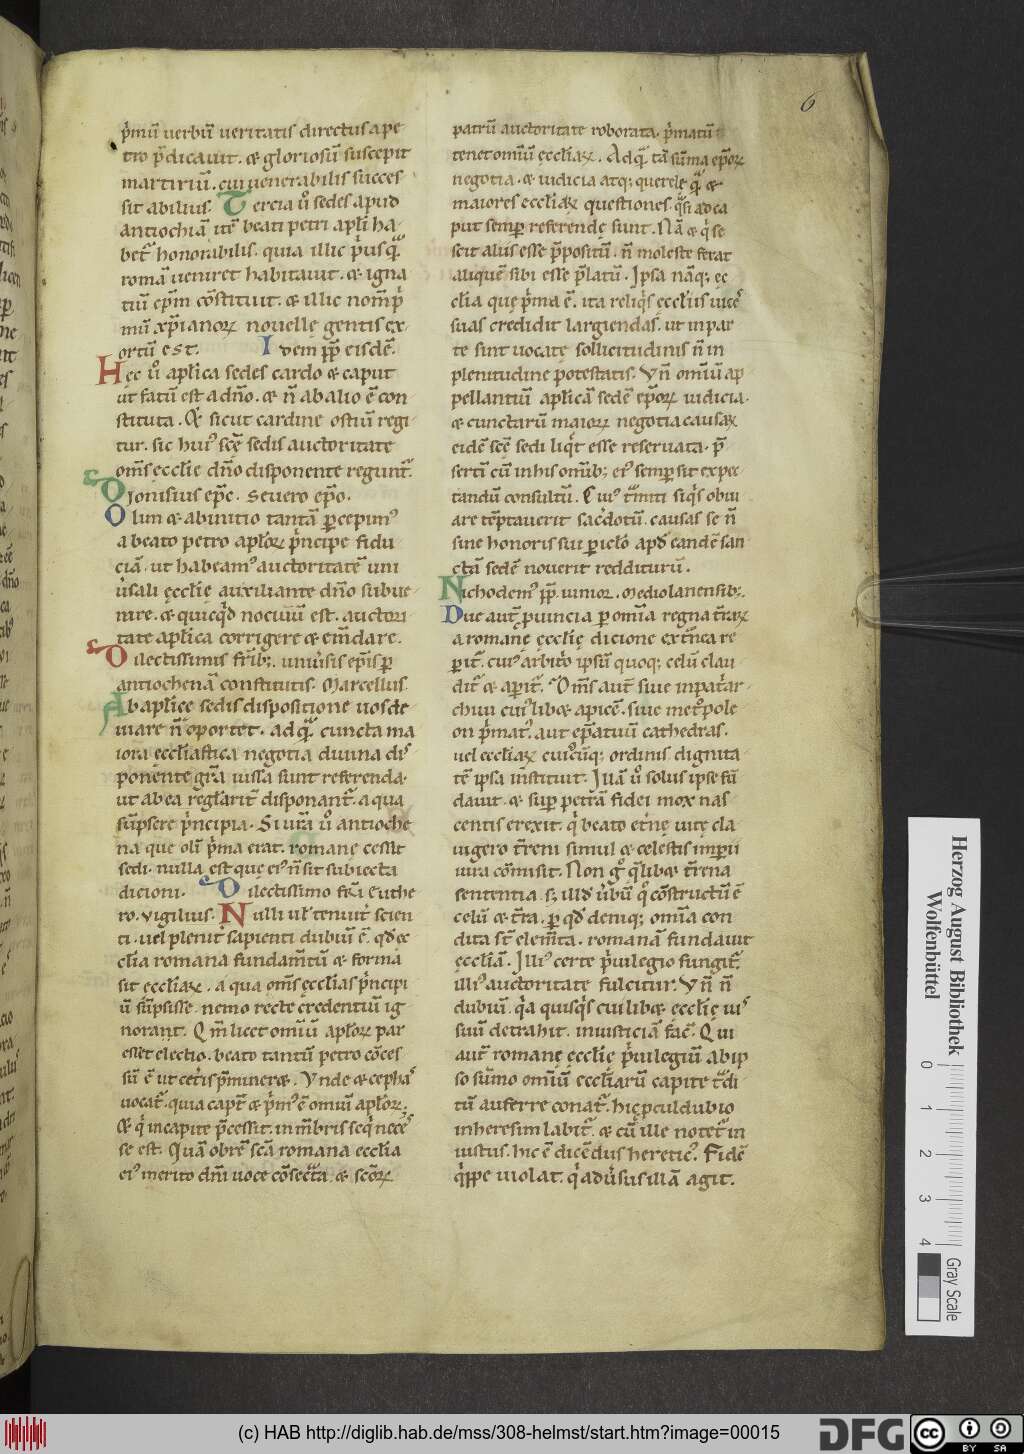 6
p̄mū uerbū ueritatis directus a pe
tro p̄dicauit. & gloriosū suscepit
martiriū. cui uenerabilis succes
sit abilius. Tercia ū sedes apud
antiochiā itē beati petri apłi ha
bet̄ honorabilis. quia illic p̄usq̄
romā ueniret habitauit. & igna
tiū ep̄m cōstituit. & illic nom̄ p̄
mū xp̄ianoꝝ nouellę gentis ex
ortū est. Idem pp̄ eisdē.
Hęc ū apłica sedes cardo & caput
ut fatū est a dn̄o. & n̄ ab alio ē con
stituta. & sicut cardine ostiū regi
tur. sic huiꝰ scē sedis auctoritate
om̄s ecclię dn̄o disponente regunt̄.
Dionisius ep̄c. Seuero ep̄o.
Olim & ab initio tantā ꝑcepimꝰ
a beato petro apłoꝝ p̄ncipe fidu
ciā. ut habeamꝰ auctoritatē uni
ūsali ęcclię auxiliante dn̄o subue
nire. & quicq̄d nociuū est. auctori
tate aplica corrigere & em̄dare.
Dilectissimis fr̄ib;. uniūsis ep̄is ꝑ
antiochenā constitutis. Marcellus.
Ab aplicę sedis dispositione uos de
uiare n̄ oportet. ad q̄ cuncta ma
iora ecclīastica negotia diuina dis
ponente gr̄a iussa sunt referenda.
ut ab ea regłarit̄ disponant̄. a qua
sūpsere p̄ncipia. Si ur̄a ū antioche
na que oli p̄ma erat. romane cessit
sedi. nulla est que eiꝰ n̄ sit subiecta
dicioni. Dilectissimo fr̄i euthe
ro. Vigilius. Nulli ut̄ tenuit̄ scien
ti. uel plenit̄ sapienti dubiū ē. qd̄ ęc
clīa romana fundam̄tū & forma
sit eccliaꝝ. a qua om̄s ęcclias p̄ncipi
ū sūpsisse. nemo recte credentiū ig
norant. Qm̄ licet omiū apłoꝝ par
esset electio. beato tantū petro cōces
sū ē ut cet̄is p̄mineret. Vnde & cephaˢ
uocat̄. quia capt̄ & p̄mꝰ ē omiū apłoꝝ.
& q̄ in capite p̄cessit. in m̄bris seq̄ necēˢ
se est. Quā obrē scā romana ecclia
eiꝰ merito dn̄i uoce cōsecrata. & scōꝝ
patrū auctoritate roborata. p̄matū
tenet omiū ęccliaꝝ. Ad q̄ tā sūma ep̄oꝝ
negotia. & iudicia atq; querelę q̄ &
maiores eccliaꝝ questiones. q̄si ad ca
put semꝑ referende sunt. Nā & q̄ se
scit aliis esse p̄positū. n̄ moleste ferat
aliquē sibi esse p̄latū. Ipsa nāq; ęc
clīa que p̄ma ē. ita reliq̄s ęccliis uicēˢ
suas credidit largiendas. ut in par
te sint uocatę sollicitudinis n̄ in
plenitudine potestatis. Vn̄ omiū ap
pellantiū aplicā sedē ep̄oꝝ iudicia.
& cunctarū maioꝝ negotia causaꝝ
eidē scē sedi liq̄t esse reseruata. p̄
sertī cū in his omib; eiꝰ semꝑ sit expec
tandū consultū. Cuiꝰ trmiti siq̄s obui
are tēptauerit sac̄dotū. causas se n̄
sine honoris sui ꝑiclo apd̄ eandē san
ctā sedē nouerit redditurū.
Nichodemꝰ pp̄ iunior. Mediolanensib;.
Due aut̄ ꝓuincia ꝑ omīa regna t̄raꝝ
a romanę ęcclię dicione ext̄nea re
perit̄. cuiꝰ arbit̄o ipsū quoq; celū clau
dit̄ & aperit̄. Om̄s aut̄ siue inpat̄ar
chiuꝰ cuiꝰ libet apicē. siue met̄opole
on p̄matꝰ. aut ep̄atuū cathedras.
uel eccliaꝝ cuicūq; ordinis dignita
tē ipsa instituit. Illā ū solus ipse fū
dauit. & suꝑ petrā fidei mox nas
centis erexit. q̄ beato et̄nę uitę cla
uigero t̄reni simul & celestis imꝑii
iura cōmisit. Non g̊ q̄libet t̄rena
sententia. s; illd̄ ūbū q̊ cōstructū ē
celū & t̄ra. ꝑ qd̄ deniq; omīa con
dita st̄ elem̄ta. romanā fundauit
ęccliā. Illiꝰ certe p̄uilegio fungit̄.
illiꝰ auctoritate fulcitur. Vn̄ n̄
dubiū. q̄a quisq̄s cuilibet ęcclię iuˢ
suū detrahit. iniusticiā fac̄. Qui
aut̄ romanę ęcclię p̄uilegiū ab ip
so sūmo omiū eccliarū capite t̄di
tū auferre conat̄. hic ꝓculdubio
in heresim labit̄. & cū ille notet̄ in
iustus. hic ē dicēdus hereticꝰ. Fidē
q̄ppe uiolat. q̄ adūsus illā agit.
Herzog August Bibliothek
Wolfenbüttel
0 1 2 3 4
Gray Scale
(c) HAB http://diglib.hab.de/mss/308-helmst/start.htm?image=00015
DFG
cc
BY SA